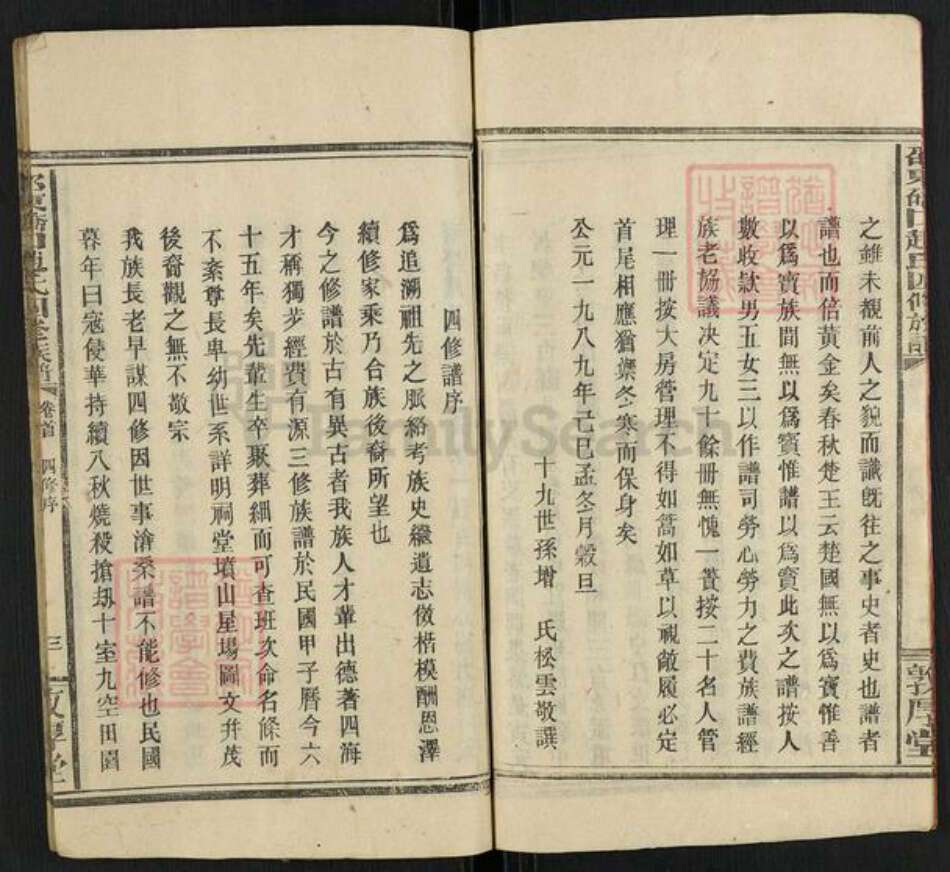 之雖未覩前人之貌而識旣往之事史者史也譜者
譜也而倍黃金矣春秋楚王云楚國無以爲寶惟善
以爲寶族間無以爲寶惟譜以爲寶此次之譜按人
數收款男五女三以作譜司勞心勞力之費族譜經
族老協議决定九十餘冊無愧一簣按二十名人管
理一冊按大房管理不得如蒿如草以視敝履必定
首尾相應猶禦冬寒而保身矣
公元一九八九年己巳孟冬月穀旦
十九世孫增 氏松雲敬譔
敦厚堂
四修譜序
爲追溯祖先之脈絡考族史繼遺志傚楷模酬恩澤
續修家乘乃合族後裔所望也
今之修譜於古有異古者我族人才輩出德著四海
才稱獨步經費有源三修族譜於民國甲子曆今六
十五年矣先輩生卒聚葬細而可查班次命名條而
不紊尊長卑幼世系詳明祠堂墳山星場圖文幷茂
後裔觀之無不敬宗
我族長老早謀四修因世事滄桑譜不能修也民國
暮年日寇侵華持續八秋燒殺搶刼十室九空田園
卷首 四修序
三
FamilySearch